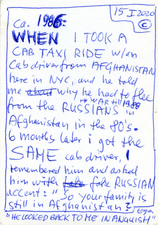 15 I 2020
©
ca. 1986:
WHEN I TOOK A
CAB TAXI RIDE w/an
Cab driver from AFGHANISTAN
here in NYC, and he told
me about why he had to flee
→ WAR til 1988
from the RUSSIANS in
Afghanistan in the 80's.
6 months later i got the
SAME cab driver, I
remembered him and asked
him with fake RUSSIAN
accent: "So your family is
still in Afghanistan?"
"HE LOOKED BACK TO ME IN ANGUISH"